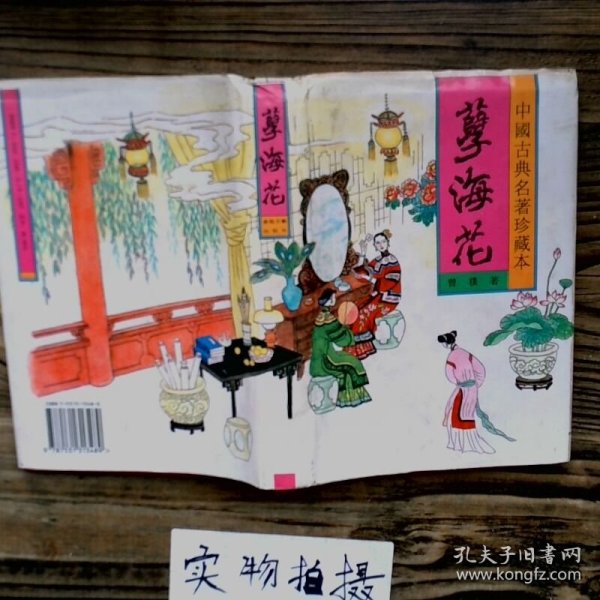 孽海花
中國古典名著珍藏本
曾樸著
孽海花
实物拍摄
孔夫子旧书网
www.kongfz.com